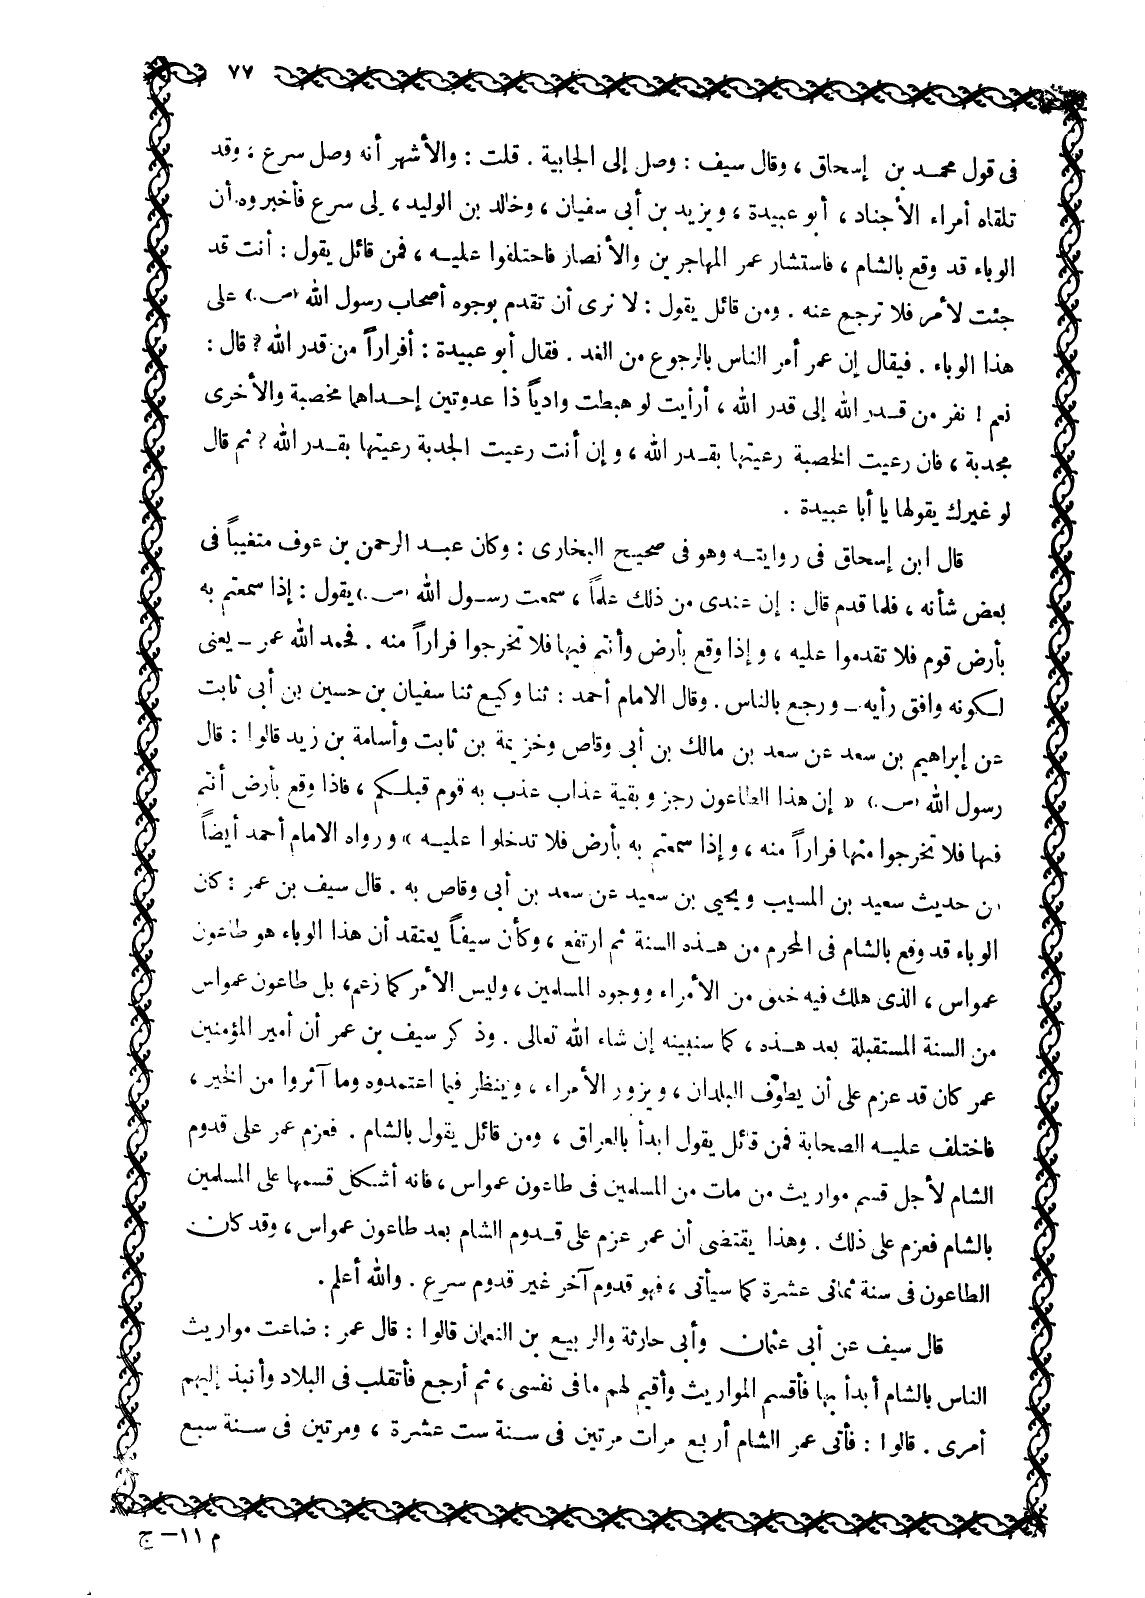 ٧٧
فى قول محمد بن إسحاق ، وقال سيف : وصل إلى الجابية . قلت : والأشهر أنه وصل سرع ؛ وقد
تلقاه أمراء الأجناد ، أبو عبيدة ، ويزيد بن أبى سفيان ، وخالد بن الوليد ، إلى سرع فأخبروه أن
الوباء قد وقع بالشام ، فاستشار عمر المهاجرين والأنصار فاختلفوا عليه ، فمن قائل يقول : أنت قد
جئت لأمر فلا ترجع عنه . ومن قائل يقول : لا نرى أن تقدم بوجوه أصحاب رسول الله (ص.) على
هذا الوباء . فيقال إن عمر أمر الناس بالرجوع من الغد . فقال أبو عبيدة : أفراراً من قدر الله ؟ قال :
نعم ! نفر من قدر الله إلى قدر الله ، أرأيت لو هبطت وادياً ذا عدوتين إحداهما مخصبة والأخرى
مجدبة ، فان رعيت الخصبة رعيتها بقدر الله ، وإن أنت رعيت الجدبة رعيتها بقدر الله ؟ ثم قال
لو غيرك يقولها يا أبا عبيدة .
قال ابن إسحاق فى روايته وهو فى صحيح البخارى : وكان عبد الرحمن بن عوف متغيباً فى
بعض شأنه ، فلما قدم قال : إن عندى من ذلك علماً ، سمعت رسول الله (ص.) يقول : إذا سمعتم به
بأرض قوم فلا تقدموا عليه ، وإذا وقع بأرض وأنتم فيها فلا تخرجوا فراراً منه . فحمد الله عمر ــ يعنى
لكونه وافق رأيه ــ ورجع بالناس . وقال الامام أحمد : ثنا وكيع ثنا سفيان بن حسين بن أبى ثابت
عن إبراهيم بن سعد عن سعد بن مالك بن أبى وقاص وخزيمة بن ثابت وأسامة بن زيد قالوا : قال
رسول الله (ص.) « إن هذا الطاعون رجز وبقية عذاب عذب به قوم قبلكم ، فاذا وقع بأرض أنتم
فيها فلا تخرجوا منها فراراً منه ، وإذا سمعتم به بأرض فلا تدخلوا عليه » ورواه الامام أحمد أيضاً
من حديث سعيد بن المسيب ويحيى بن سعيد عن سعد بن أبى وقاص به . قال سيف بن عمر : كان
الوباء قد وقع بالشام فى المحرم من هذه السنة ثم ارتفع ، وكأن سيفاً يعتقد أن هذا الوباء هو طاعون
عمواس ، الذى هلك فيه خلق من الأمراء ووجوه المسلمين ، وليس الأمر كما زعم ، بل طاعون عمواس
من السنة المستقبلة بعد هذه ، كما سنبينه إن شاء الله تعالى . وذكر سيف بن عمر أن أمير المؤمنين
عمر كان قد عزم على أن يطوّف البلدان ، ويزور الأمراء ، وينظر فيما اعتمدوه وما آثروا من الخير ،
فاختلف عليه الصحابة فمن قائل يقول ابدأ بالعراق ، ومن قائل يقول بالشام . فعزم عمر على قدوم
الشام لأجل قسم مواريث من مات من المسلمين فى طاعون عمواس ، فانه أشكل قسمها على المسلمين
بالشام فعزم على ذلك . وهذا يقتضى أن عمر عزم على قدوم الشام بعد طاعون عمواس ، وقد كان
الطاعون فى سنة ثمانى عشرة كما سيأتى ، فهو قدوم آخر غير قدوم سرع . والله أعلم .
قال سيف عن أبى عثمان وأبى حارثة والربيع بن النعمان قالوا : قال عمر : ضاعت مواريث
الناس بالشام أبدأ بها فأقسم المواريث وأقيم لهم ما فى نفسى ، ثم أرجع فأتقلب فى البلاد وأنبذ إليهم
أمرى . قالوا : فأتى عمر الشام أربع مرات مرتين فى سنة ست عشرة ، ومرتين فى سنة سبع
م ١١ – ج